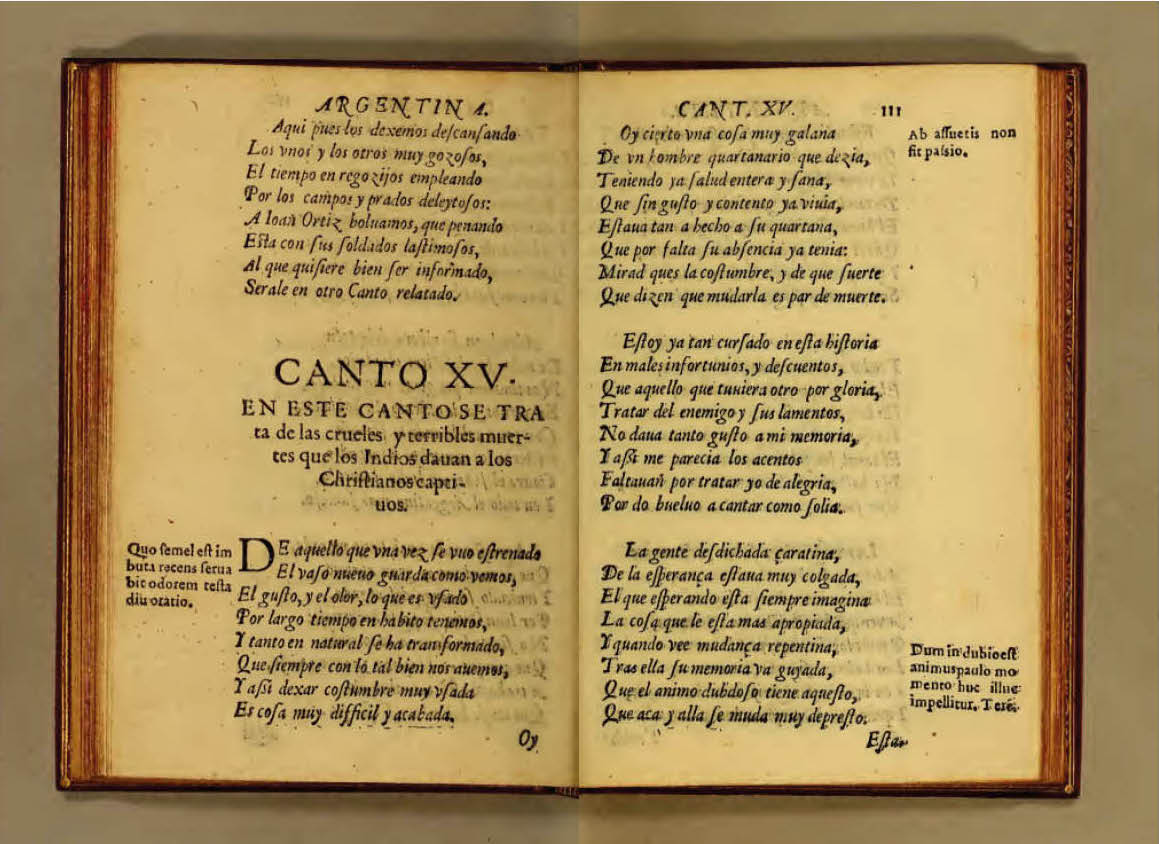 ARGENTINA.
Aqui pues los dexemos descansando
Los vnos y los otros muy gozosos,
El tiempo en regozijos empleando
Por los campos y prados deleytosos:
A Ioan Ortiz boluamos, que penando
Esta con sus soldados lastimosos,
Al que quisiere bien ser informado,
Serale en otro Canto relatado.
CANTO XV.
EN ESTE CANTO SE TRA
ta de las crueles y terribles muer-
tes que los Indios dauan a los
Christianos capti-
uos.
Quo semel est im
buta recens serua
bit odorem testa
diu oratio.
DE aquello que vna vez se vuo estrenado
El vaso nueuo guarda como vemos,
El gusto, y el olor, lo que es vsado
Por largo tiempo en habito tenemos,
Y tanto en natural se ha transformado,
Que siempre con lo tal bien nos auemos,
Y assi dexar costumbre muy vsada
Es cosa muy difficil y acabada.
Oy
CANT. XV.
111
Oy cierto vna cosa muy galana
De vn hombre quartanario que dezia,
Teniendo ya salud entera y sana,
Que sin gusto y contento ya viuia,
Estaua tan a hecho a su quartana,
Que por falta su absencia ya tenia:
Mirad ques la costumbre, y de que suerte
Que dizen que mudarla es par de muerte.
Ab assuetis non
fit passio.
Estoy ya tan cursado en esta historia
En males infortunios, y descuentos,
Que aquello que tuuiera otro por gloria,
Tratar del enemigo y sus lamentos,
No daua tanto gusto a mi memoria,
Y assi me parecia los acentos
Faltauan por tratar yo de alegria,
Por do bueluo a cantar como solia.
La gente desdichada çaratina,
De la esperança estaua muy colgada,
El que esperando esta siempre imagina
La cosa que le esta mas apropiada,
Y quando vee mudança repentina,
Tras ella su memoria va guyada,
Que el animo dubdoso tiene aquesto,
Que aca y alla se muda muy depresto.
Dum in dubio est
animus paulo mo
mento huc illuc
impellitur. Terē.
Esta